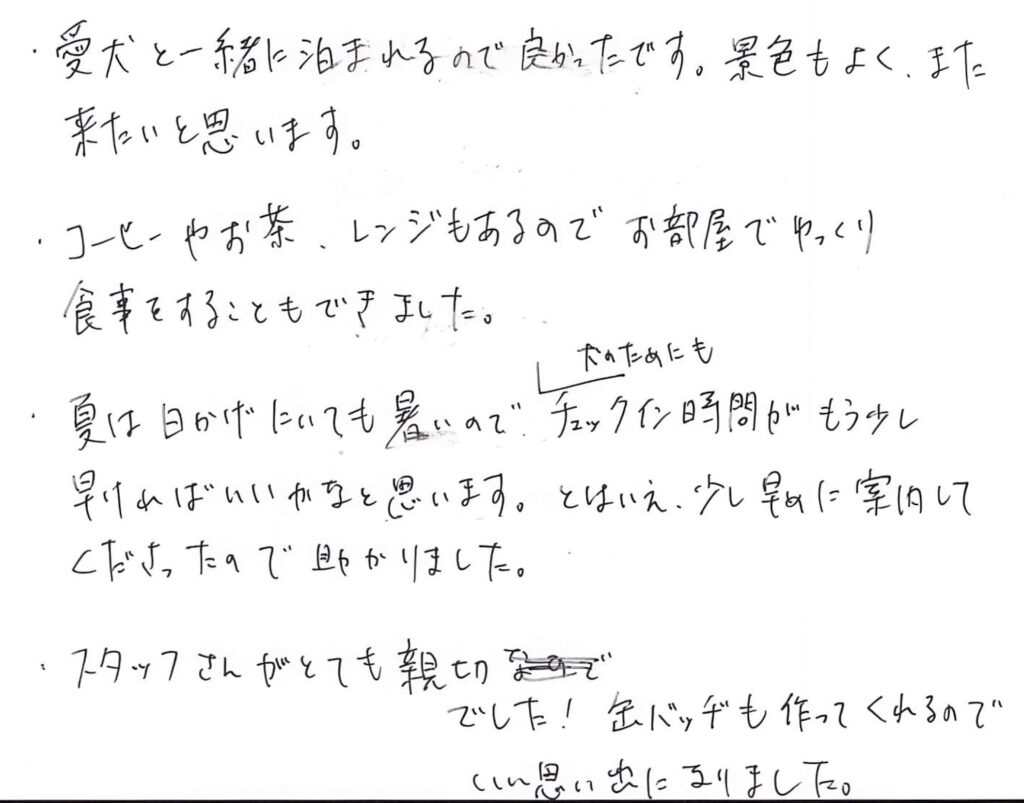 ・愛犬と一緒に泊まれるので良かったです。景色もよく、また
来たいと思います。
・コーヒーやお茶、レンジもあるのでお部屋でゆっくり
食事をすることもできました。
犬のためにも
・夏は日かげにいても暑いので、チェックイン時間がもう少し
早ければいいかなと思います。とはいえ、少し早めに案内して
くださったので助かりました。
・スタッフさんがとても親切なので
でした！缶バッヂも作ってくれるので
いい思い出になりました。